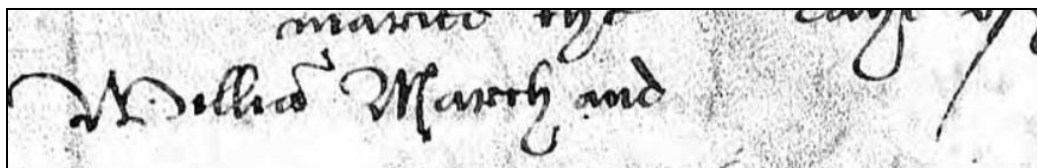 maried the daye of
Williā March and